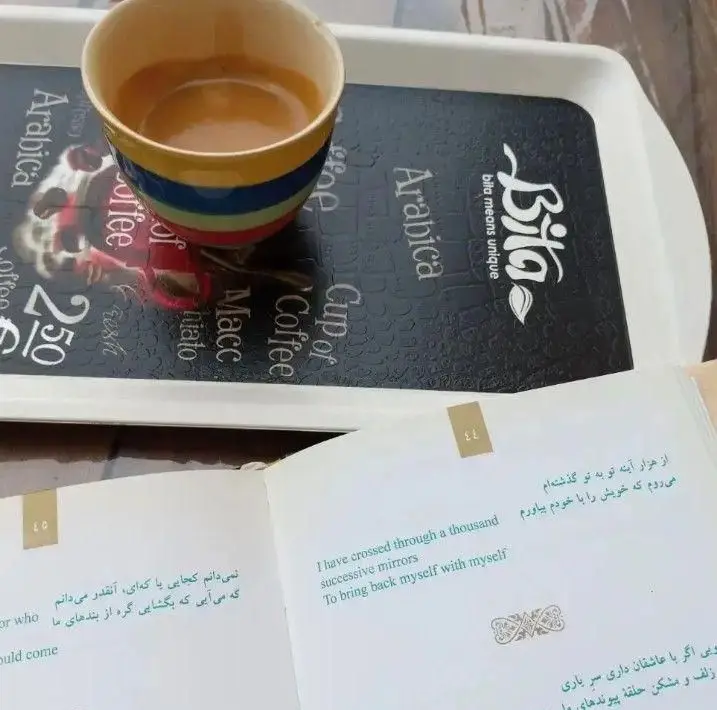 Arabica
Coffee
Cup of
Coffee
Macc
hiato
Fresh
2.50
€
Arabica
Bita
bita means unique
٤٤
از هزار آینه تو به تو گذشته‌ام
می‌روم که خویش را با خودم بیاورم
I have crossed through a thousand
successive mirrors
To bring back myself with myself
وبی اگر با عاشقان داری سرِ یاری
زلف و مشکن حلقهٔ پیوندهای ما
٤٥
نمی‌دانم کجایی یا که‌ای، آنقدر می‌دانم
که می‌آیی که بگشایی گره از بندهای ما
or who
ould come